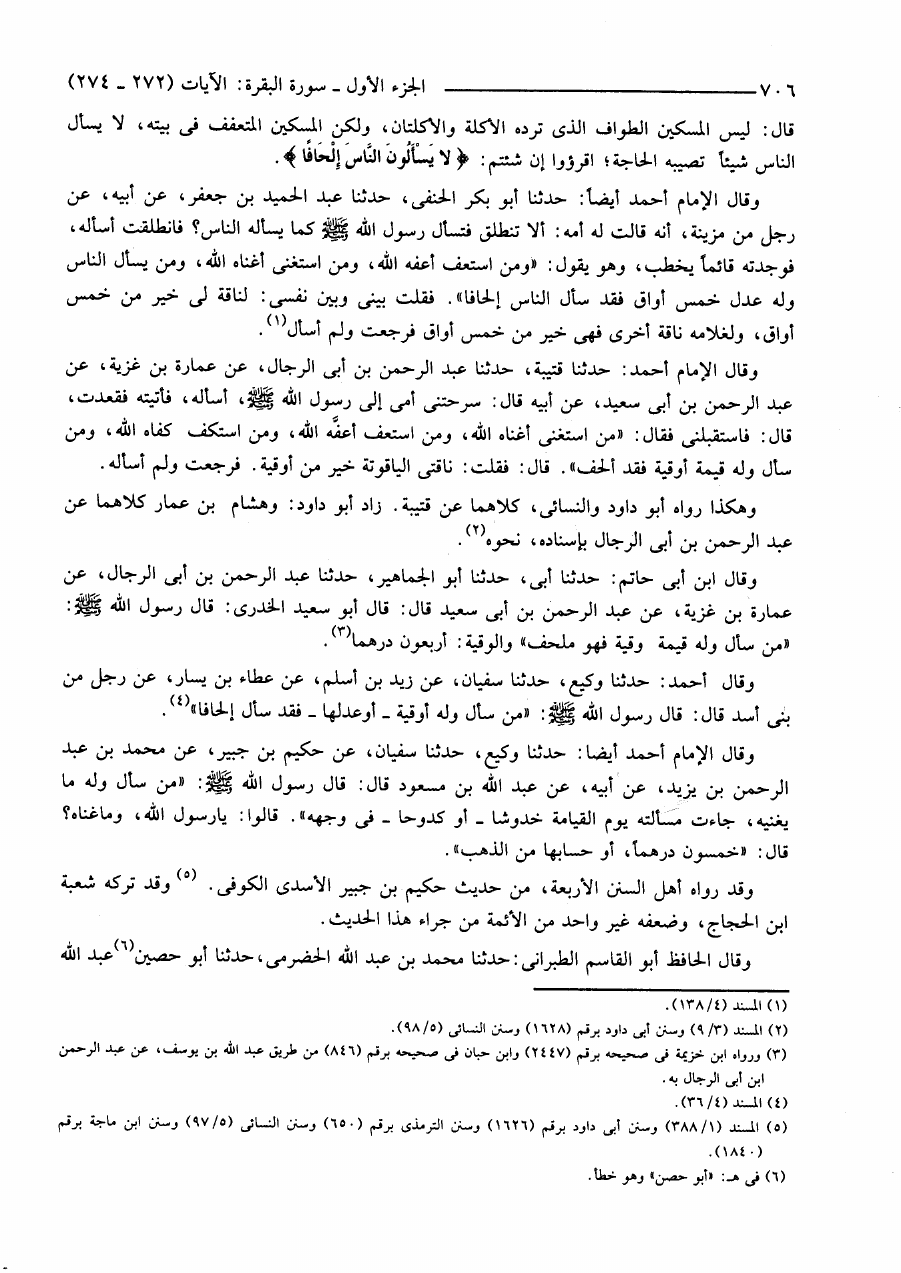 ٧٠٦ ـــــــــــــــ الجزء الأول ـ سورة البقرة: الآيات (٢٧٢ ـ ٢٧٤)
قال: ليس المسكين الطواف الذى ترده الأكلة والأكلتان، ولكن المسكين المتعفف فى بيته، لا يسأل
الناس شيئاً تصيبه الحاجة؛ اقرؤوا إن شئتم: ﴿ لا يَسْأَلُونَ النَّاسَ إِلْحَافًا ﴾.
وقال الإمام أحمد أيضاً: حدثنا أبو بكر الحنفى، حدثنا عبد الحميد بن جعفر، عن أبيه، عن
رجل من مزينة، أنه قالت له أمه: ألا تنطلق فتسأل رسول الله ﷺ كما يسأله الناس؟ فانطلقت أسأله،
فوجدته قائماً يخطب، وهو يقول: «ومن استعف أعفه الله، ومن استغنى أغناه الله، ومن يسأل الناس
وله عدل خمس أواق فقد سأل الناس إلحافا». فقلت بينى وبين نفسى: لناقة لى خير من خمس
أواق، ولغلامه ناقة أخرى فهى خير من خمس أواق فرجعت ولم أسأل(١).
وقال الإمام أحمد: حدثنا قتيبة، حدثنا عبد الرحمن بن أبى الرجال، عن عمارة بن غزية، عن
عبد الرحمن بن أبى سعيد، عن أبيه قال: سرحتنى أمى إلى رسول الله ﷺ، أسأله، فأتيته فقعدت،
قال: فاستقبلنى فقال: «من استغنى أغناه الله، ومن استعف أعفَّه الله، ومن استكف كفاه الله، ومن
سأل وله قيمة أوقية فقد ألحف». قال: فقلت: ناقتى الياقوتة خير من أوقية. فرجعت ولم أسأله.
وهكذا رواه أبو داود والنسائى، كلاهما عن قتيبة. زاد أبو داود: وهشام بن عمار كلاهما عن
عبد الرحمن بن أبى الرجال بإسناده، نحوه(٢).
وقال ابن أبى حاتم: حدثنا أبى، حدثنا أبو الجماهير، حدثنا عبد الرحمن بن أبى الرجال، عن
عمارة بن غزية، عن عبد الرحمن بن أبى سعيد قال: قال أبو سعيد الخدرى: قال رسول الله ﷺ:
«من سأل وله قيمة وقية فهو ملحف» والوقية: أربعون درهما(٣).
وقال أحمد: حدثنا وكيع، حدثنا سفيان، عن زيد بن أسلم، عن عطاء بن يسار، عن رجل من
بنى أسد قال: قال رسول الله ﷺ: «من سأل وله أوقية ـ أوعدلها ـ فقد سأل إلحافا»(٤).
وقال الإمام أحمد أيضا: حدثنا وكيع، حدثنا سفيان، عن حكيم بن جبير، عن محمد بن عبد
الرحمن بن يزيد، عن أبيه، عن عبد الله بن مسعود قال: قال رسول الله ﷺ: «من سأل وله ما
يغنيه، جاءت مسألته يوم القيامة خدوشا ـ أو كدوحا ـ فى وجهه». قالوا: يارسول الله، وماغناه؟
قال: «خمسون درهماً، أو حسابها من الذهب».
وقد رواه أهل السنن الأربعة، من حديث حكيم بن جبير الأسدى الكوفى. (٥) وقد تركه شعبة
ابن الحجاج، وضعفه غير واحد من الأئمة من جراء هذا الحديث.
وقال الحافظ أبو القاسم الطبرانى: حدثنا محمد بن عبد الله الحضرمى، حدثنا أبو حصين(٦)عبد الله
(١) المسند (١٣٨/٤).
(٢) المسند (٩/٣) وسنن أبى داود برقم (١٦٢٨) وسنن النسائى (٩٨/٥).
(٣) ورواه ابن خزيمة فى صحيحه برقم (٢٤٤٧) وابن حبان فى صحيحه برقم (٨٤٦) من طريق عبد الله بن يوسف، عن عبد الرحمن
ابن أبى الرجال به.
(٤) المسند (٣٦/٤).
(٥) المسند (٣٨٨/١) وسنن أبى داود برقم (١٦٢٦) وسنن الترمذى برقم (٦٥٠) وسنن النسائى (٩٧/٥) وسنن ابن ماجة برقم
(١٨٤٠).
(٦) فى هـ: «أبو حصن» وهو خطأ.